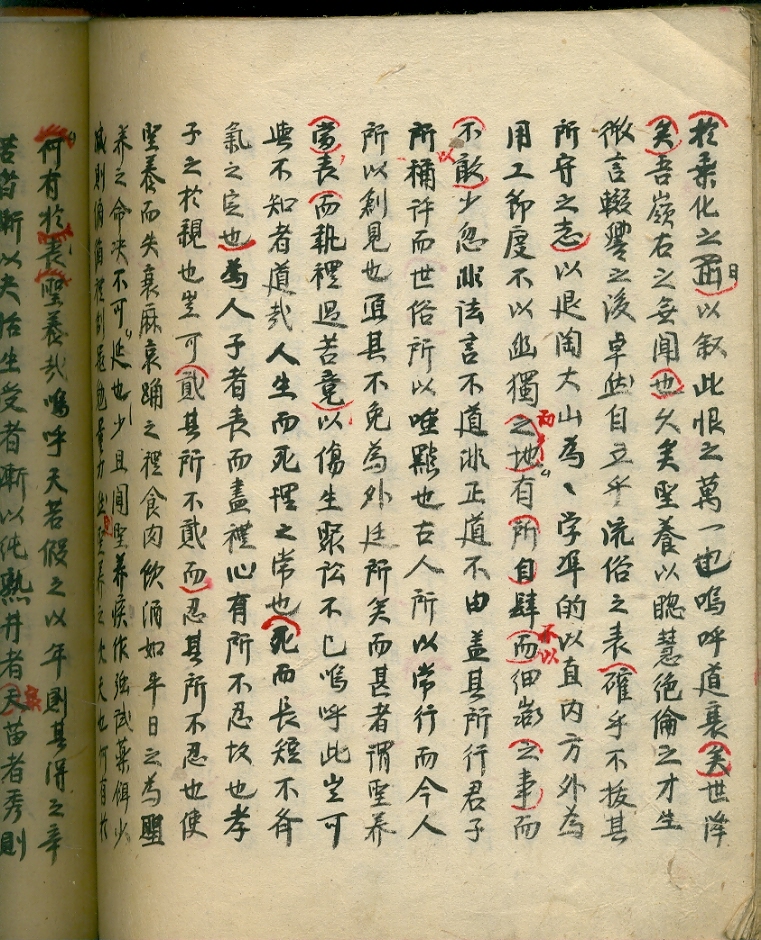 於乘化之日以叙此恨之萬一也嗚呼道衰矣世降
矣吾嶺右之無聞也久矣聖養以聰慧絶倫之才生
微言輟響之後卓然自立乎流俗之表確乎不拔其
所守之志以退陶大山為為学準的以直內方外為
用工節度不以幽獨之地而有所自肆而不以細微之事而
不敢少忽非法言不道非正道不由盖其所行君子
所以稱許而世俗所以唯點也古人所以常行而今人
所以創見也宜其不免為外廷所笑而甚者謂聖养
當喪而執禮過苦竟以傷生聚訟不已嗚呼此豈可
與不知者道哉人生而死理之常也死而長短不齊
氣之定也為人子者喪而盡禮心有所不忍故也孝
子之於親也豈可貳其所不貳而忍其所不忍也使
聖養而失衰麻哀踊之禮食肉飲酒如平日之為聖
养之命决不可延也少且聞聖养疾作強試藥餌少
减則
何有於喪聖養哉嗚呼天若假之以年則其得之
以夫 生受者漸以純熟 者 苗者秀則